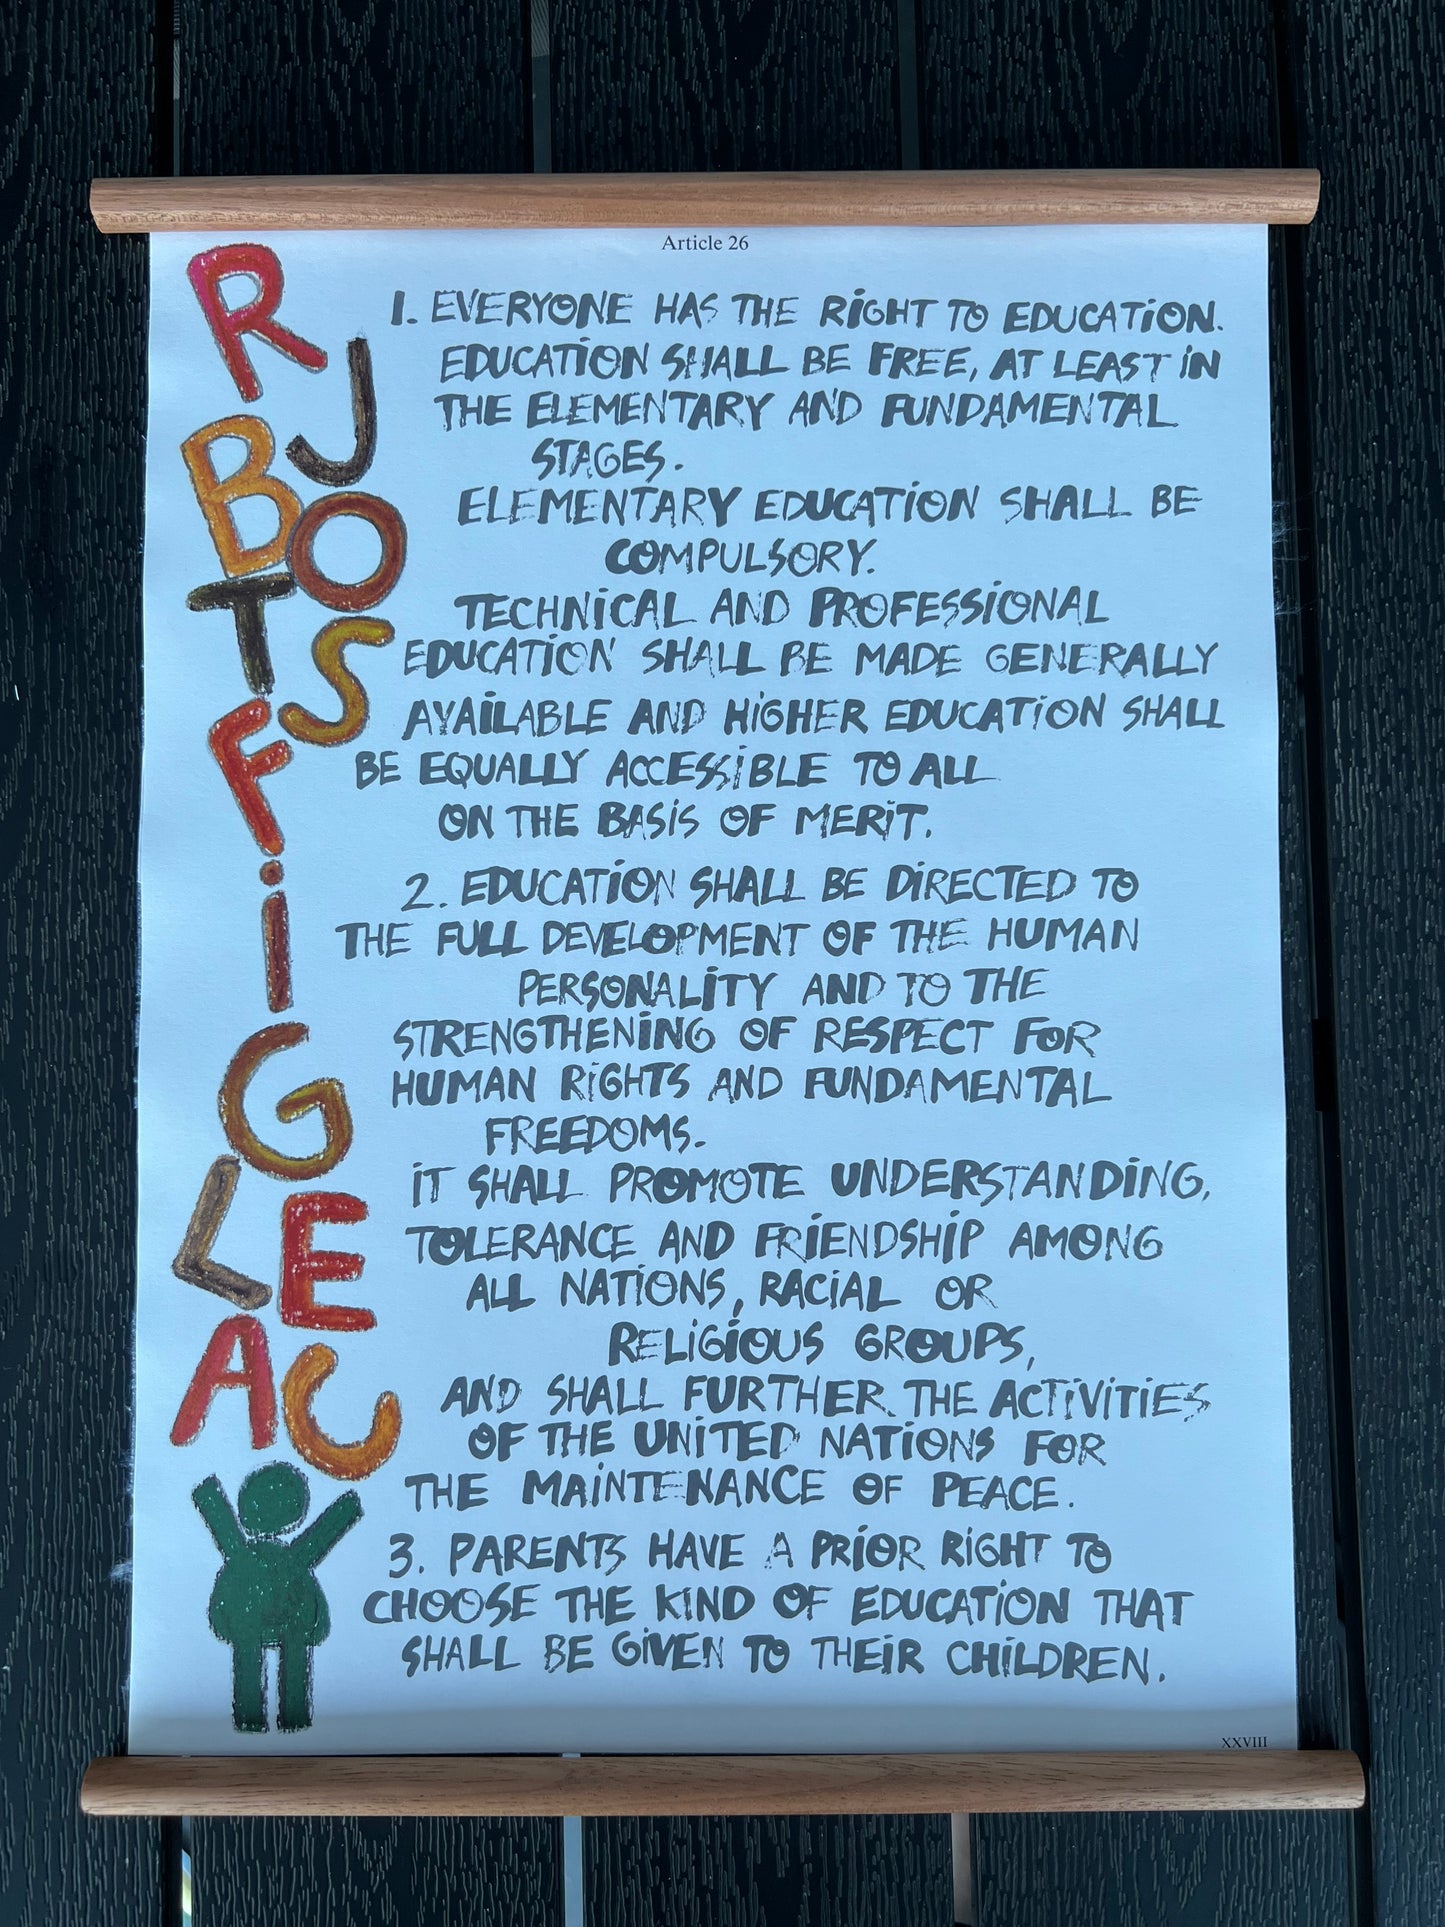 Article 26
R
J
B
O
T
S
F
i
G
L
E
A
C
1. EVERYONE HAS THE RiGHT TO EDUCATiON.
EDUCATiON SHALL BE FREE, AT LEAST iN
THE ELEMENTARY AND FUNDAMENTAL
STAGES.
ELEMENTARY EDUCATiON SHALL BE
COMPULSORY.
TECHNiCAL AND PROFESSiONAL
EDUCATiON SHALL BE MADE GENERALLY
AVAiLABLE AND HiGHER EDUCATiON SHALL
BE EQUALLY ACCESSiBLE TO ALL
ON THE BASiS OF MERiT.
2. EDUCATiON SHALL BE DiRECTED TO
THE FULL DEVELOPMENT OF THE HUMAN
PERSONALiTY AND TO THE
STRENGTHENiNG OF RESPECT FOR
HUMAN RiGHTS AND FUNDAMENTAL
FREEDOMS.
iT SHALL PROMOTE UNDERSTANDiNG,
TOLERANCE AND FRiENDSHiP AMONG
ALL NATiONS, RACiAL OR
RELiGiOUS GROUPS,
AND SHALL FURTHER THE ACTiViTiES
OF THE UNiTED NATiONS FOR
THE MAiNTENANCE OF PEACE.
3. PARENTS HAVE A PRiOR RiGHT TO
CHOOSE THE KiND OF EDUCATiON THAT
SHALL BE GiVEN TO THEiR CHiLDREN.
XXVIII